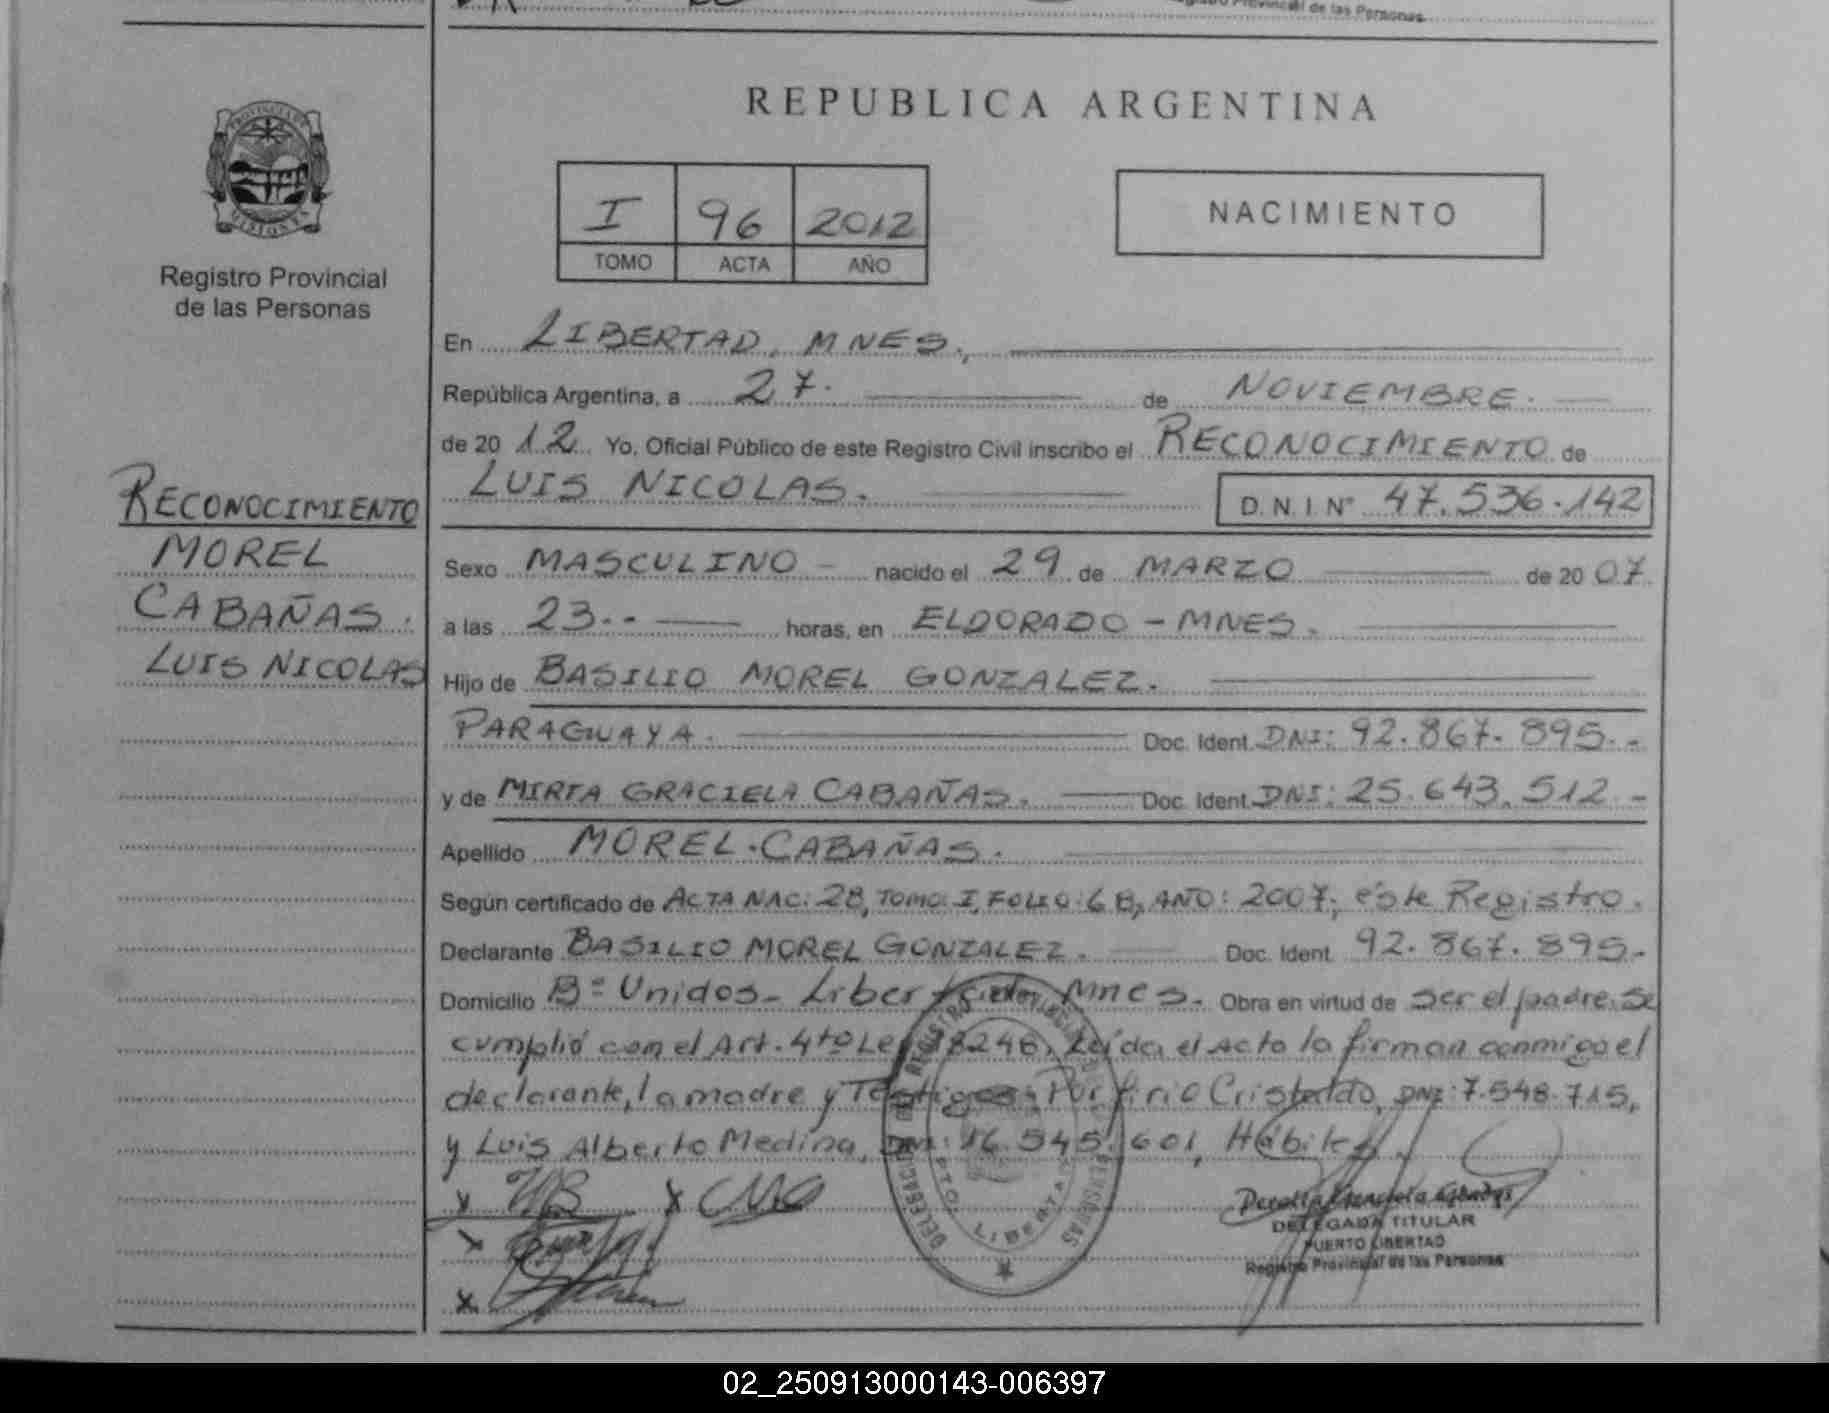 Registro Provincial de las Personas
REPUBLICA ARGENTINA
PROVINCIA DE
MISIONES
Registro Provincial
de las Personas
I 96 2012
TOMO ACTA AÑO
NACIMIENTO
En LIBERTAD, MNES.,
República Argentina, a 27. de NOVIEMBRE.
de 20 12. Yo, Oficial Público de este Registro Civil inscribo el RECONOCIMIENTO de
LUIS NICOLAS. D.N.I. Nº 47.536.142
RECONOCIMIENTO
MOREL
CABAÑAS.
LUIS NICOLAS
Sexo MASCULINO - nacido el 29 de MARZO de 20 07.
a las 23.- horas, en ELDORADO - MNES.
Hijo de BASILIO MOREL GONZALEZ.
PARAGUAYA. Doc. Ident. DNI: 92.867.895.-
y de MIRTA GRACIELA CABAÑAS. Doc. Ident. DNI: 25.643.512.-
Apellido MOREL-CABAÑAS.
Según certificado de ACTA NAC: 28, TOMO: I, FOLIO: 6 B, AÑO: 2007, éste Registro.
Declarante BASILIO MOREL GONZALEZ. Doc. Ident. 92.867.895.-
Domicilio Bº Unidos- Libertad, Mnes. Obra en virtud de ser el padre. Se
cumplió con el Art. 4to Ley 18248. Leída el Acta la firman conmigo el
declarante, la madre y Testigos: Porfirio Cristaldo, DNI: 7.548.715,
y Luis Alberto Medina, DNI: 16.545.601, Hábiles.
x x
x
x
DELEGACION DEL REGISTRO PROVINCIAL DE LAS PERSONAS
PTO. LIBERTAD
DELEGADA TITULAR
PUERTO LIBERTAD
Registro Provincial de las Personas
02_250913000143-006397